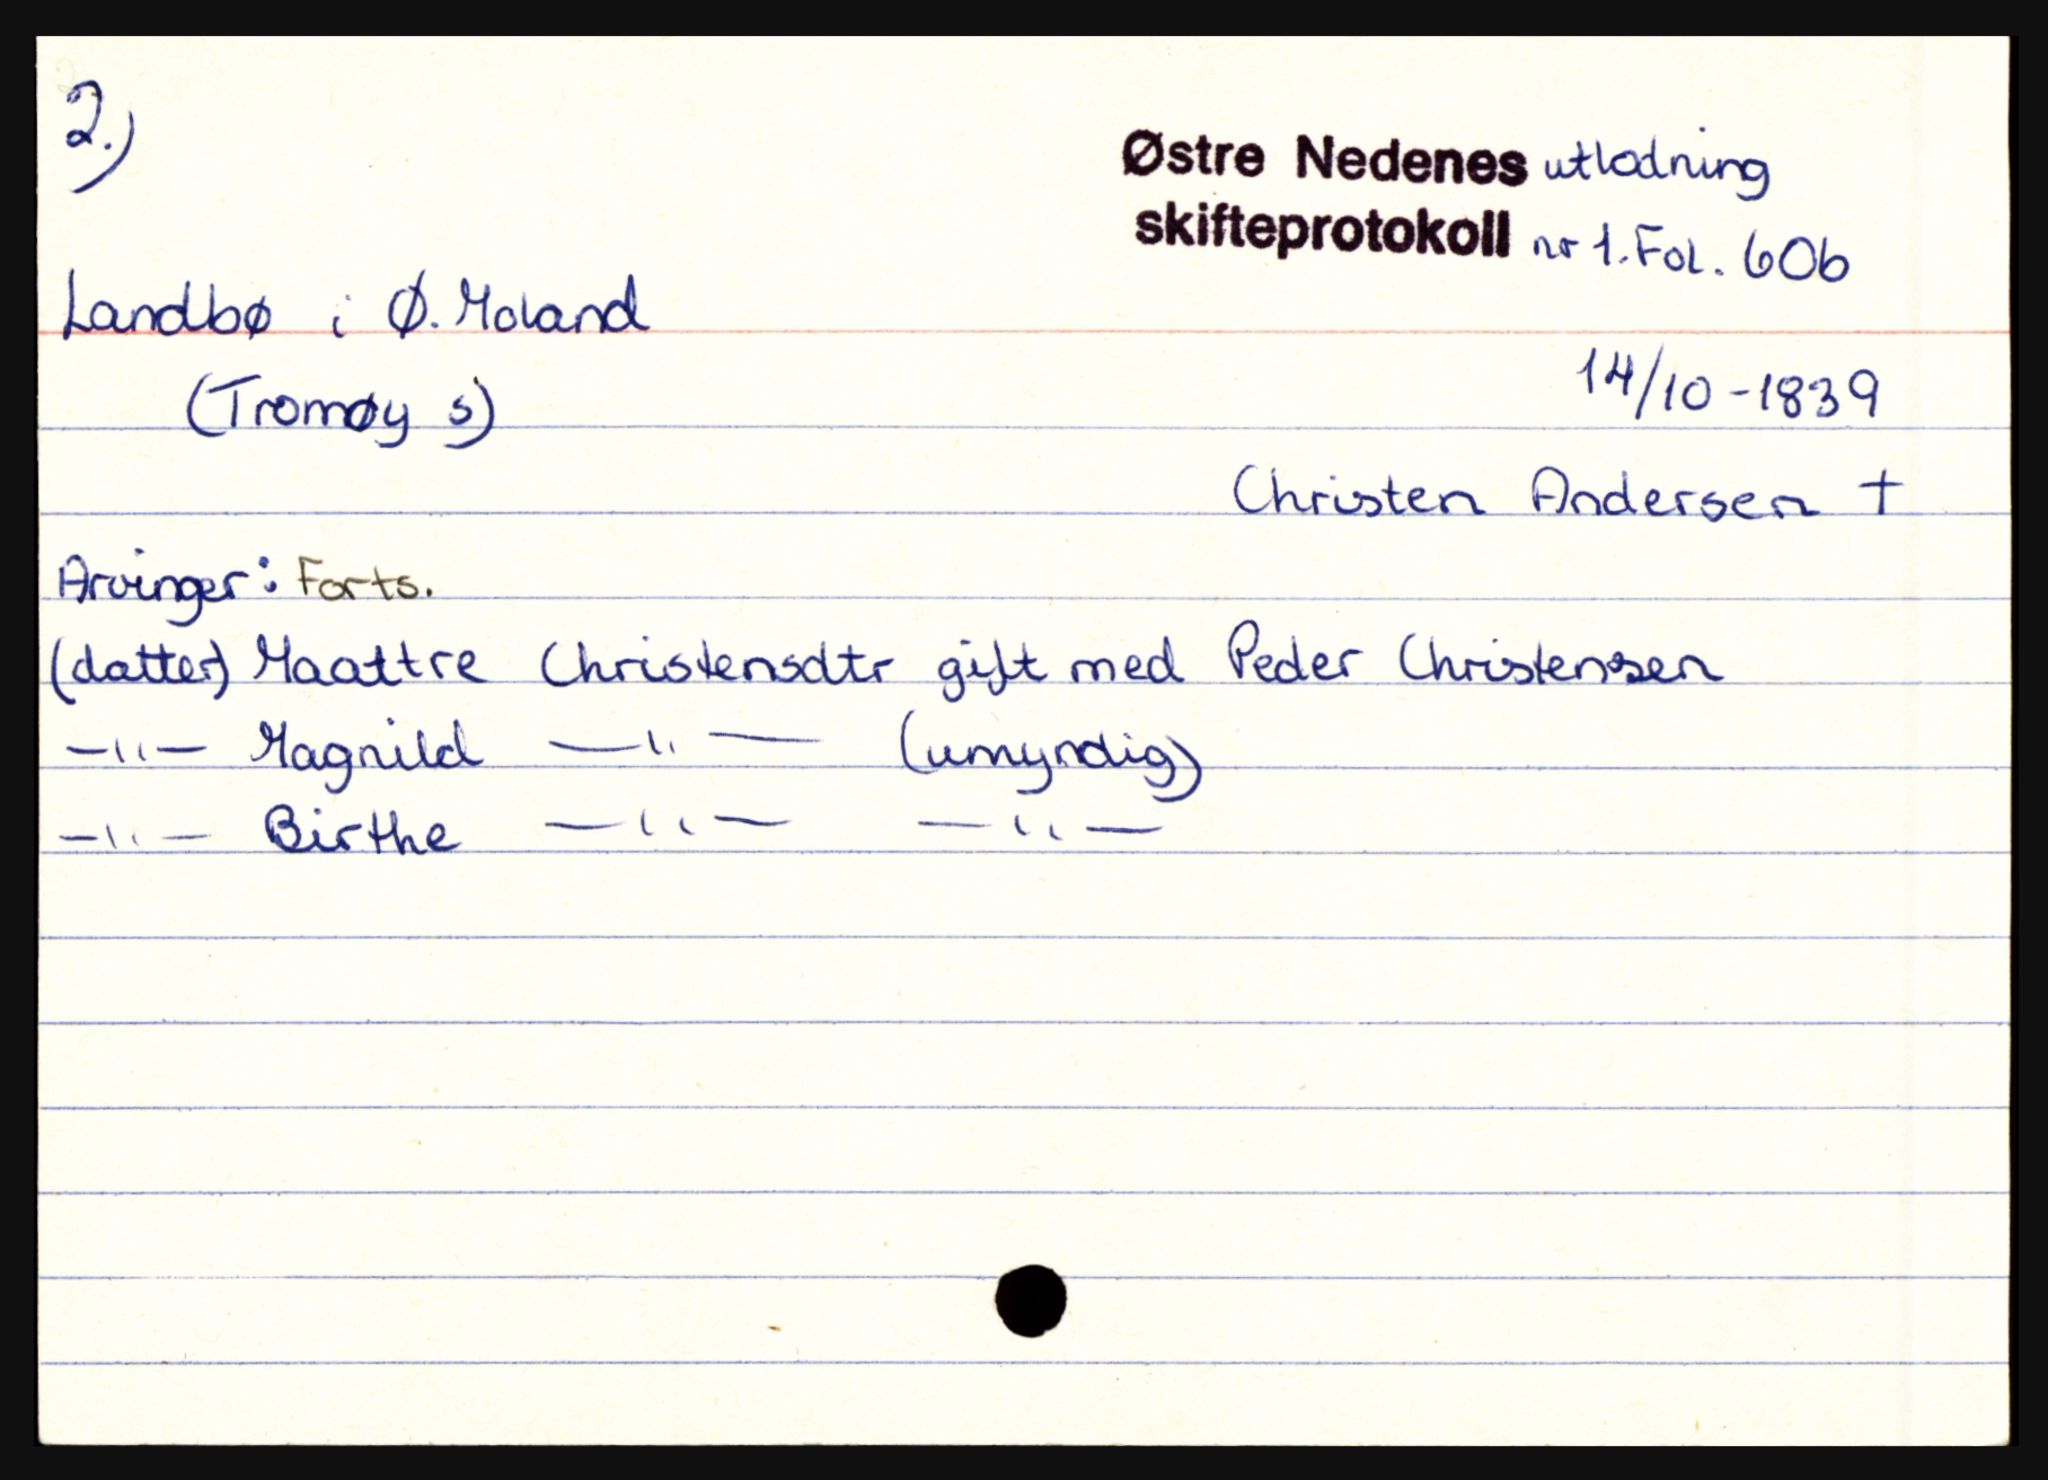 2.)
Østre Nedenes utlodning
skifteprotokoll nr 1. Fol. 60b
Landbø i Ø. Moland
(Tromøy s)
14/10-1839
Christen Andersen †
Arvinger: Forts.
(datter) Maattre Christensdtr gift med Peder Christenssen
—"— Magnild —"— (umyndig)
—"— Birthe —"— —"—